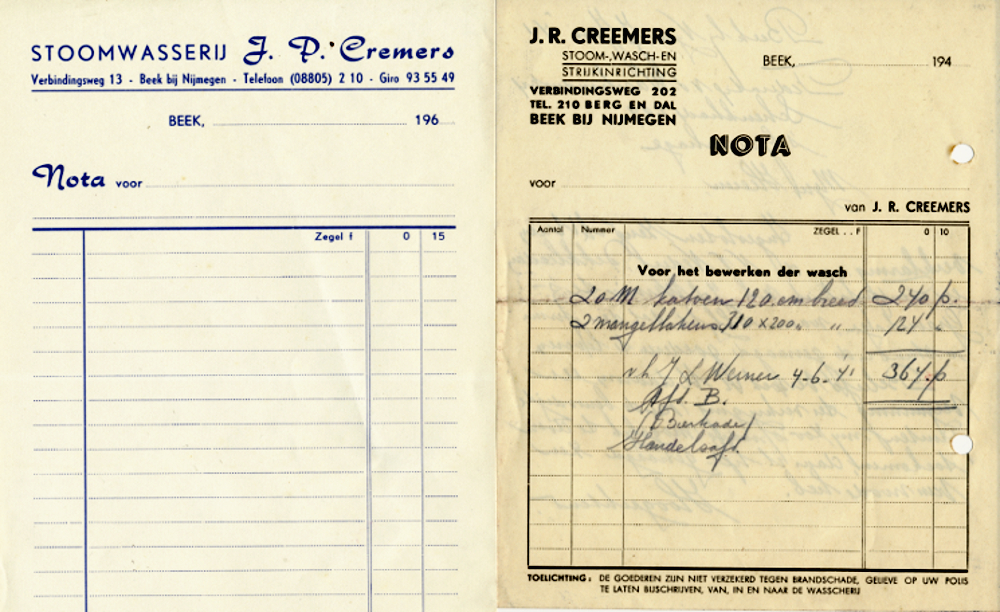 STOOMWASSERIJ J. P. Cremers
Verbindingsweg 13 - Beek bij Nijmegen - Telefoon (08805) 2 10 - Giro 93 55 49
BEEK, 196
Nota voor
Zegel f 0 15
J. R. CREEMERS
STOOM-, WASCH- EN
STRIJKINRICHTING
VERBINDINGSWEG 202
TEL. 210 BERG EN DAL
BEEK BIJ NIJMEGEN
BEEK, 194
NOTA
voor
van J. R. CREEMERS
Aantal Nummer ZEGEL . . F 0 10
Voor het bewerken der wasch
20 M katoen 120 cm breed 240 p.
2 mangellakens 310 x 200 " " 124 "
J L Werner 4-6-'41 364 p
Afd. B.
(Bierkade)
Handelsafd.
TOELICHTING: DE GOEDEREN ZIJN NIET VERZEKERD TEGEN BRANDSCHADE, GELIEVE OP UW POLIS
TE LATEN BIJSCHRIJVEN, VAN, IN EN NAAR DE WASSCHERIJ